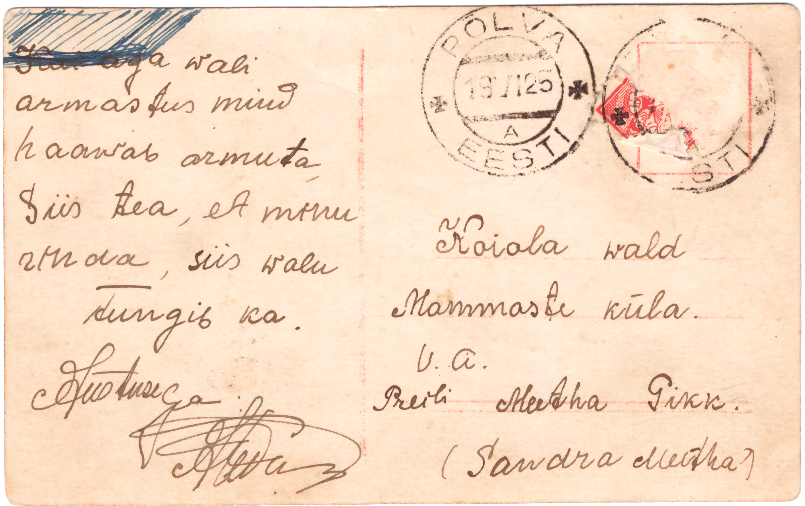 Kui aga wali
armastus mind
haawab armuta,
Siis tea, et minu
rinda, siis walu
tungib ka.
Austusega
PÕLVA
19 VI 25
A
EESTI
STI
Koiola wald
Mammaste küla.
V. A.
Preili Meetha Pikk.
(Sandra Meetha)